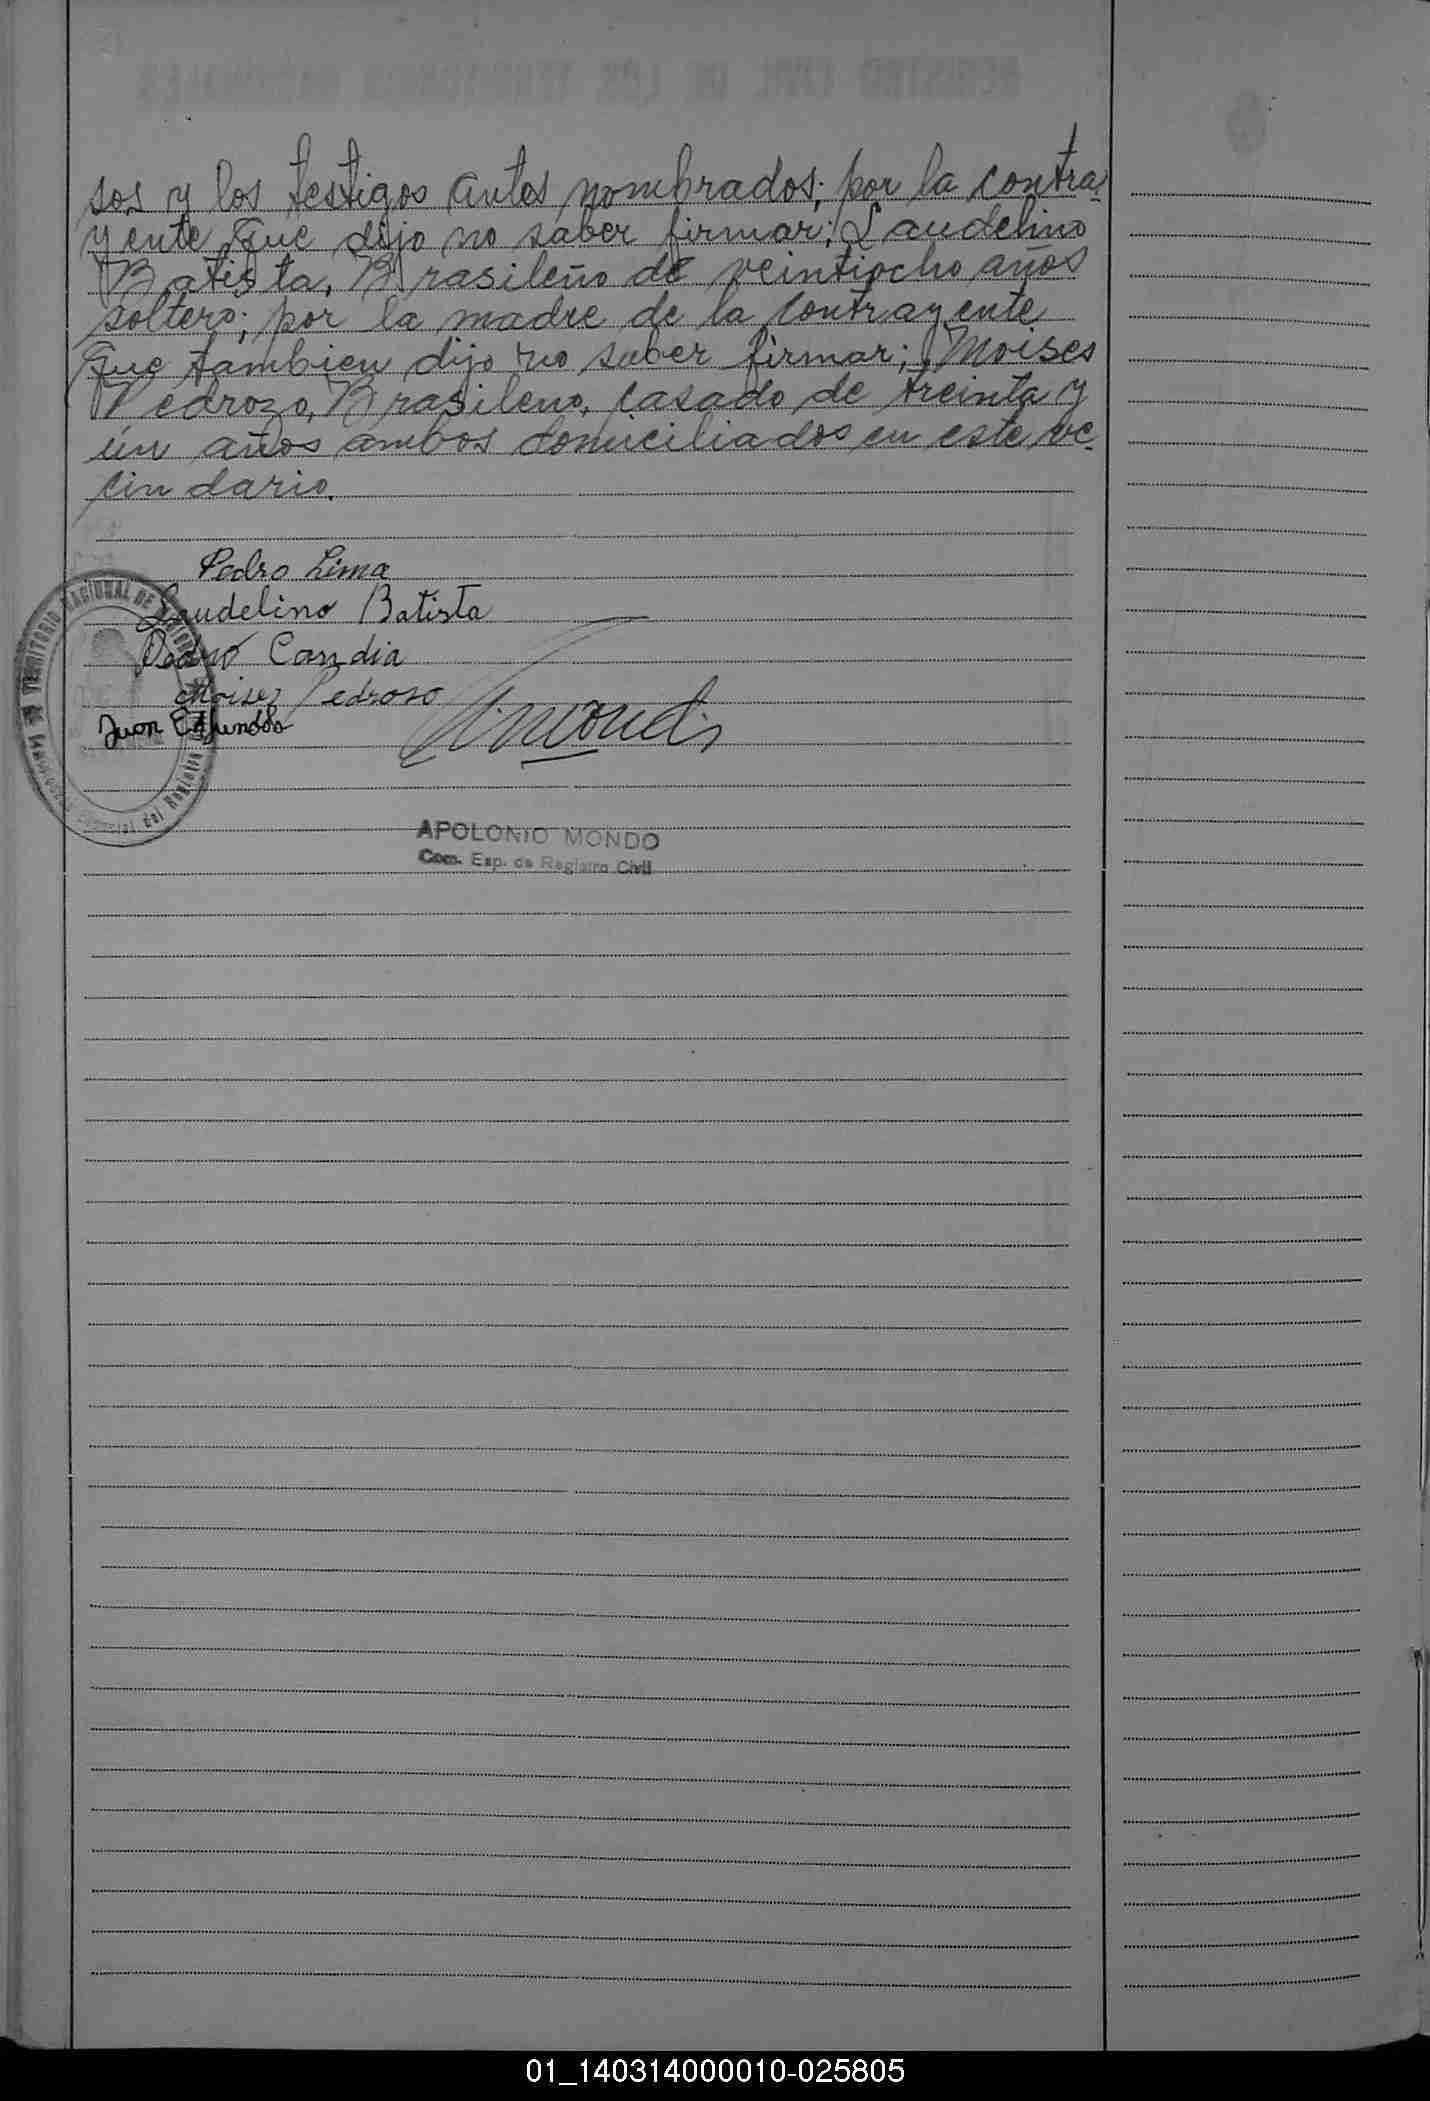 sos y los testigos antes nombrados; por la contra-
yente que dijo no saber firmar; Laudelino
Batista, Brasileño de veintiocho años
soltero; por la madre de la contrayente
que tambien dijo no saber firmar; Moises
Pedrozo, Brasileno, casado de treinta y
un años ambos domiciliados en este ve-
cindario.
Pedro Lima
Laudelino Batista
Pedro Candia
Moisez Pedroso
Juan
APOLONIO MONDO
Com. Esp. de Registro Civil
01_140314000010-025805